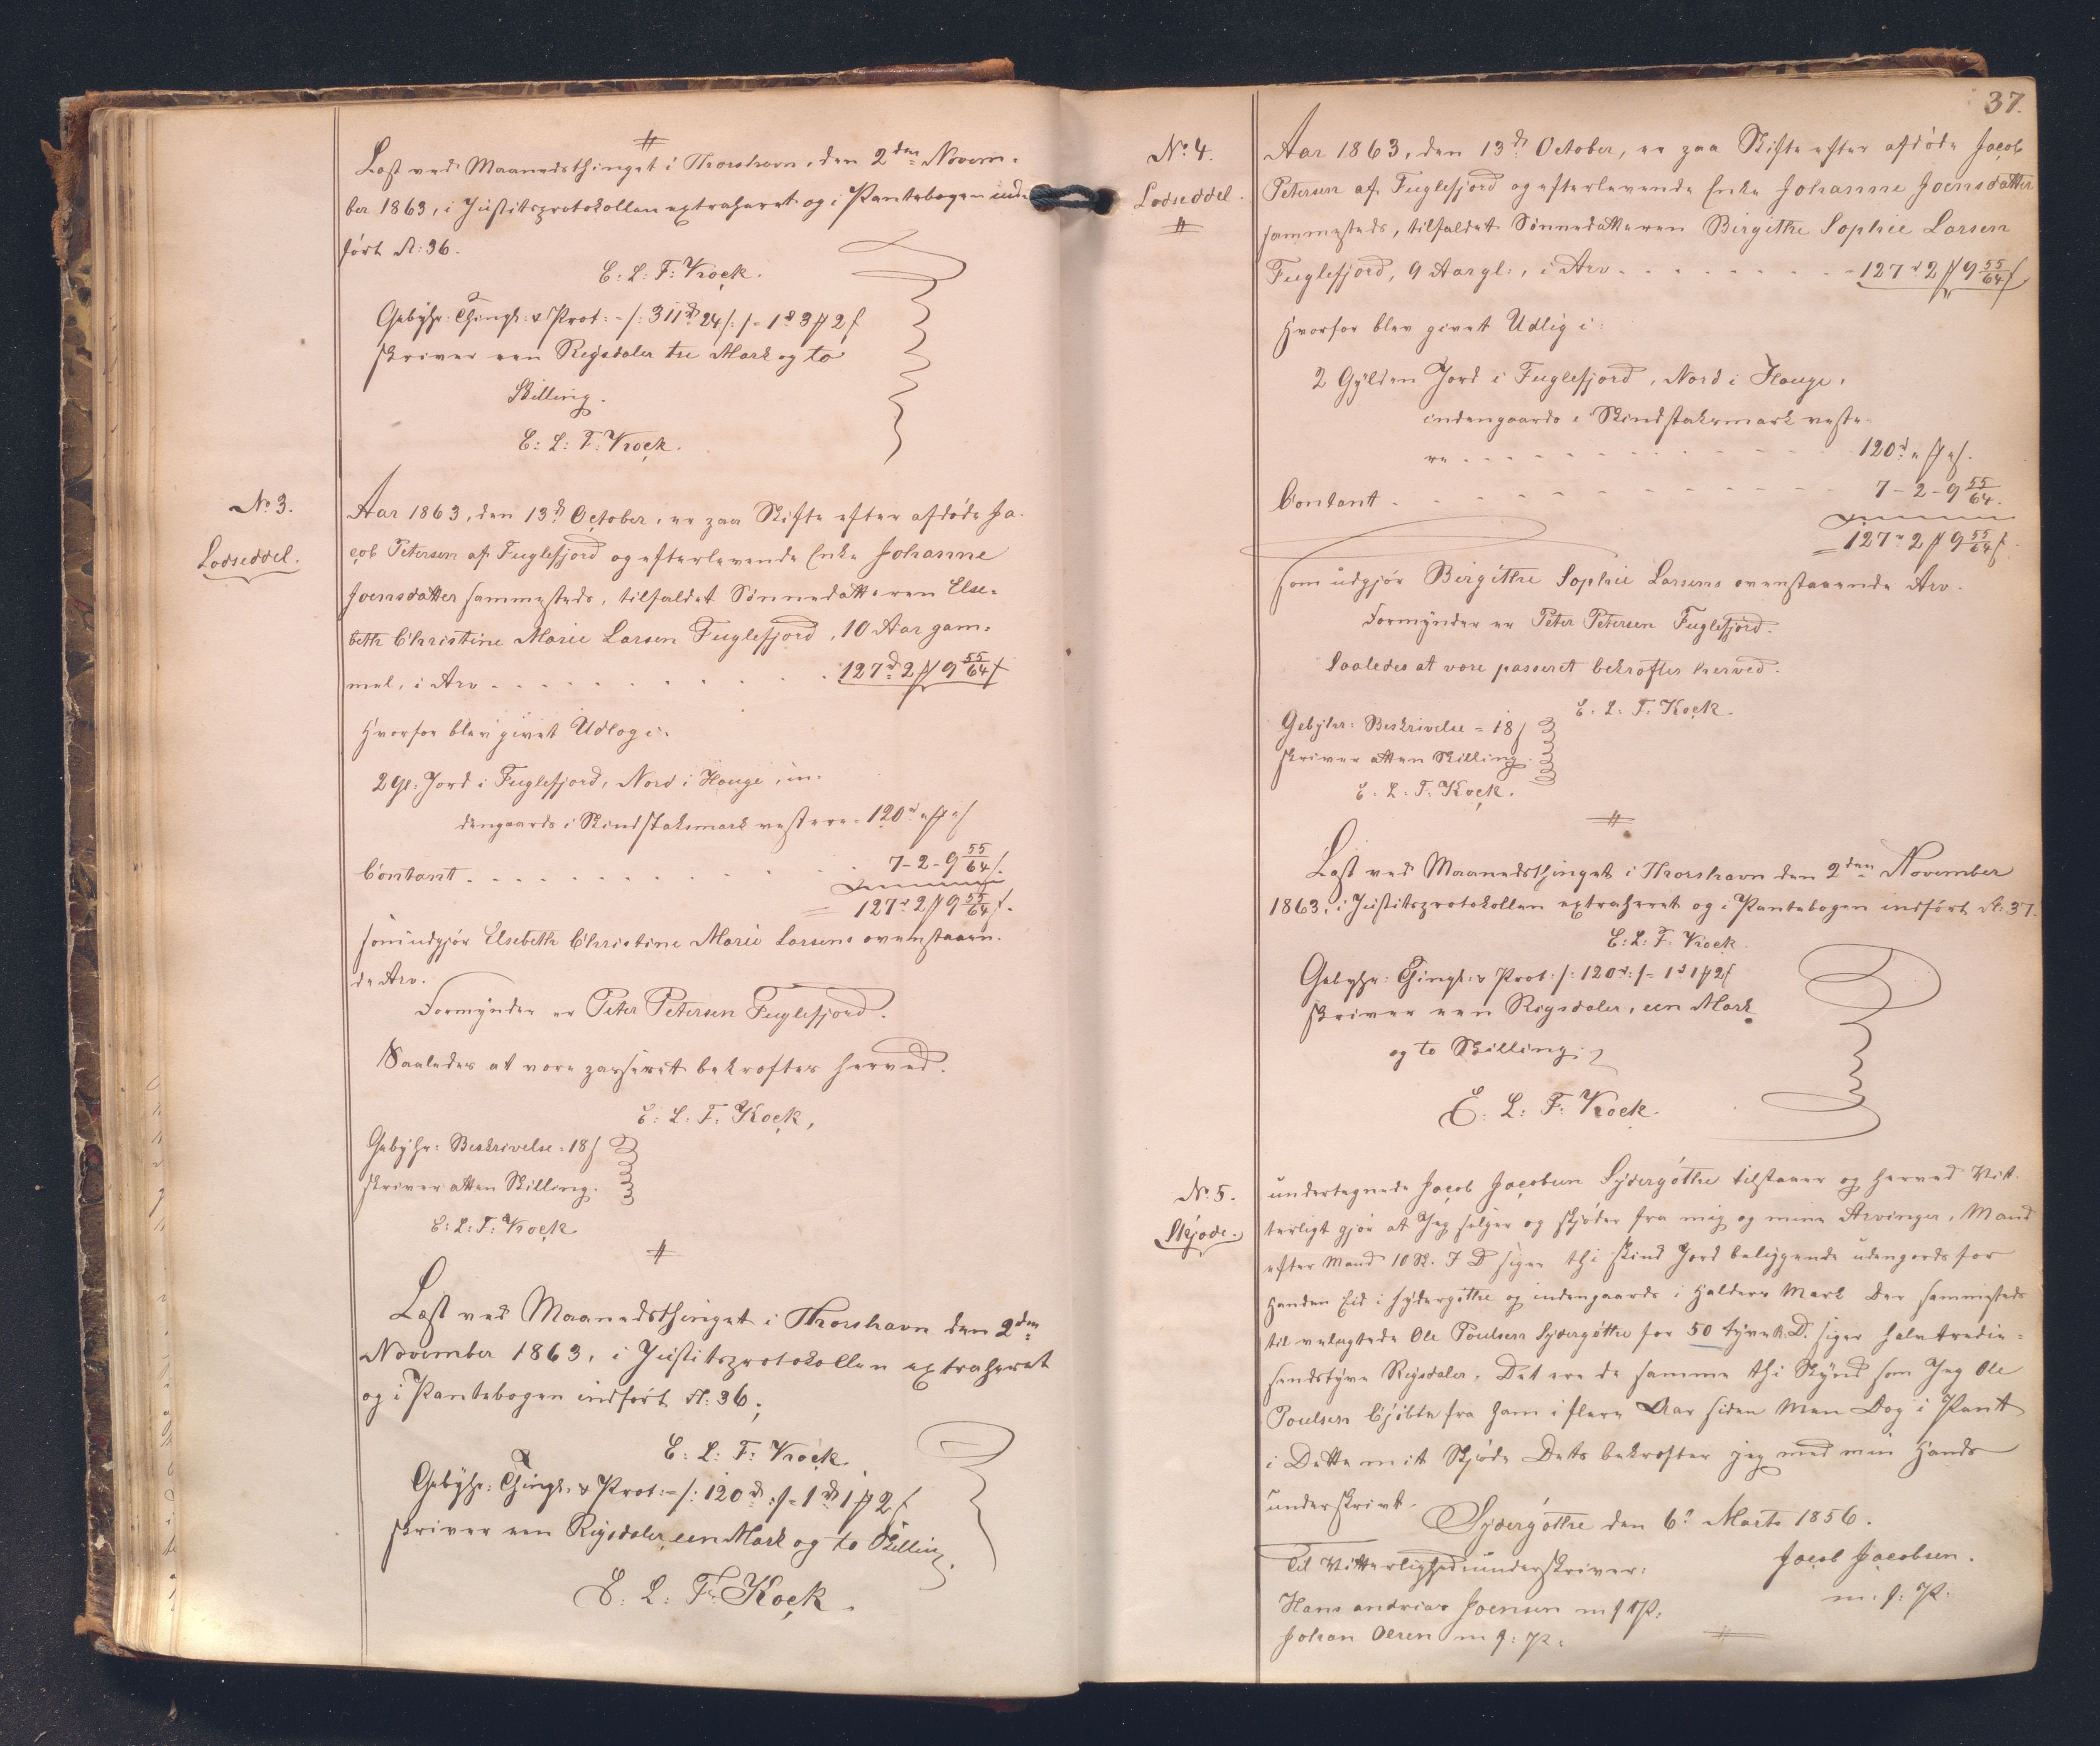 #
Læst ved Maanedsthinget i Thorshavn, den 2den Novem-
ber 1863, i Justitsprotokollen extraheret og i Pantebogen ind-
ført Fl: 36.
E: L: F: Kock.
Gebyhr: Thingl: & Prot: - /: 311rd 24 /: /= 1rd 3 # 2 s
skriver een Rigsdaler tre Mark og to
Skilling.
E: L: F: Kock.
No 3.
Lodseddel.
Aar 1863, den 13d October, er paa Skifte efter afdøde Ja-
cob Petersen af Fuglefjord og efterlevende Enke Johanne
Joensdatter sammesteds, tilfaldet Sønnedatteren Else-
beth Christine Marie Larsen Fuglefjord, 10 Aar gam-
mel, i Arv . . . . . . . . . . 127d 2 # 9 55/64 s
hvorfor blev givet Udlæg i:
2 Gl: Jord i Fuglefjord, Nord i Houge, in-
dengaards i Skindstaksmark vestere = 120rd " # " s
Contant . . . . . . . . . . 7 - 2 - 9 55/64 s.
= 127rd 2 # 9 55/64 s.
som udgjør Elsebeth Christine Marie Larsens ovenstaaen-
de Arv.
Formynder er Peter Petersen Fuglefjord.
Saaledes at være passeret bekræftes herved.
E: L: F: Kock,
Gebyhr: Beskrivelse = 18 s
skriver atten Skilling.
E: L: F: Kock
#
Læst ved Maanedsthinget i Thorshavn den 2den
November 1863, i Justitsprotokollen extraheret
og i Pantebogen indført Fl: 36;
E: L: F: Kock
Gebyhr: Thingl. & Prot: = /: 120rd :/ = 1rd 1 # 2 s
skriver een Rigsdaler, een Mark og to Skilling.
E: L: F: Kock.
37.
No 4.
Lodseddel.
#
Aar 1863, den 13d October, er paa Skifte efter afdøde Jacob
Petersen af Fuglefjord og efterlevende Enke Johanne Joensdatter
sammesteds, tilfaldet Sønnedatteren Birgithe Sophie Larsen
Fuglefjord, 9 Aar gl:, i Arv . . . . . . . . . 127rd 2 # 9 55/64 s
hvorfor blev givet Udlæg i:
2 Gylden Jord i Fuglefjord, Nord i Houge,
indengaards i Skindstaksmark veste-
re . . . . . . . . . . 120rd " # " s.
Contant . . . . . . . . . . 7 - 2 - 9 55/64.
= 127rd 2 # 9 55/64 s.
som udgjør Birgithe Sophie Larsens ovenstaaende Arv.
Formynder er Peter Petersen Fuglefjord.
Saaledes at være passeret bekræftes herved.
E. L: F. Kock.
Gebyhr: Beskrivelse = 18 s
skriver atten Skilling.
E. L: F: Kock.
#
Læst ved Maanedsthinget i Thorshavn den 2den November
1863, i Justitsprotokollen extraheret og i Pantebogen indført Fl: 37.
E: L: F. Kock.
Gebyhr: Thingl: & Prot: /: 120rd :/ = 1rd 1 # 2 s
skriver een Rigsdaler, een Mark
og to Skilling.
E: L: F: Kock.
No 5.
Skjøde.
undertegnede Jacob Jacobsen Sydergøthe tilstaaer og herved Vit-
terligt gjør at Jeg selger og skjøder fra mig og mine Arvinger, Mand
efter Mand 10 Sk. J D siger thi Skind Jord beliggende udengerds for
Handen Eid i Sydergøthe og indengaards i Halders Mark Der sammesteds
til velagtede Ole Poulsen Sydergøthe for 50 tyve R.D. siger halvtredie-
sindstyve Rigsdaler. Det ere de samme thi Skynd som Jeg Ole
Poulsen Cjøbte fra ham i flere Aar siden Men Dog i Pant
i Dette mit Skjøde Dets bekræfter jeg med min Hands
underskrivt.
Sydergøthe den 6t Marts 1856.
Jacob Jacobsen.
m. f: P:
Til Vitterlighed underskriver:
Hans andrias Joensen m f P:
Johan Olsen m f: P:
#